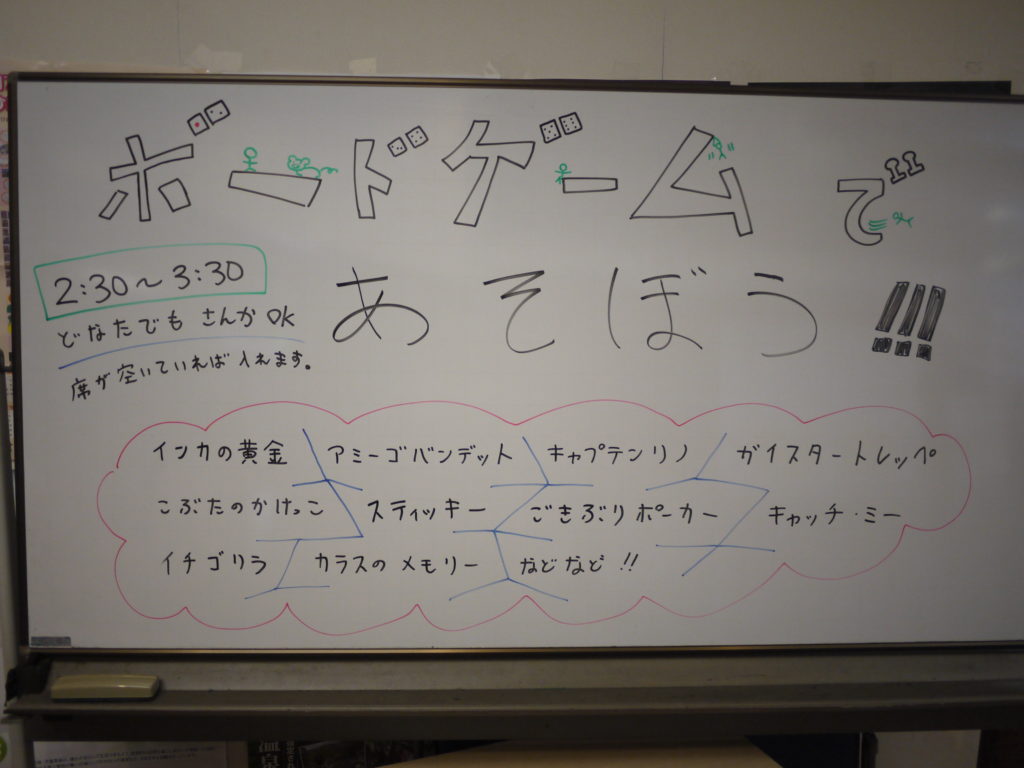 ボードゲームで
あそぼう!!!
2:30～3:30
どなたでも さんか OK
席が空いていれば入れます。
インカの黄金 アミーゴバンデット キャプテンリノ ガイスタートレッペ
こぶたのかけっこ スティッキー ごきぶりポーカー キャッチ・ミー
イチゴリラ カラスのメモリー などなど!!